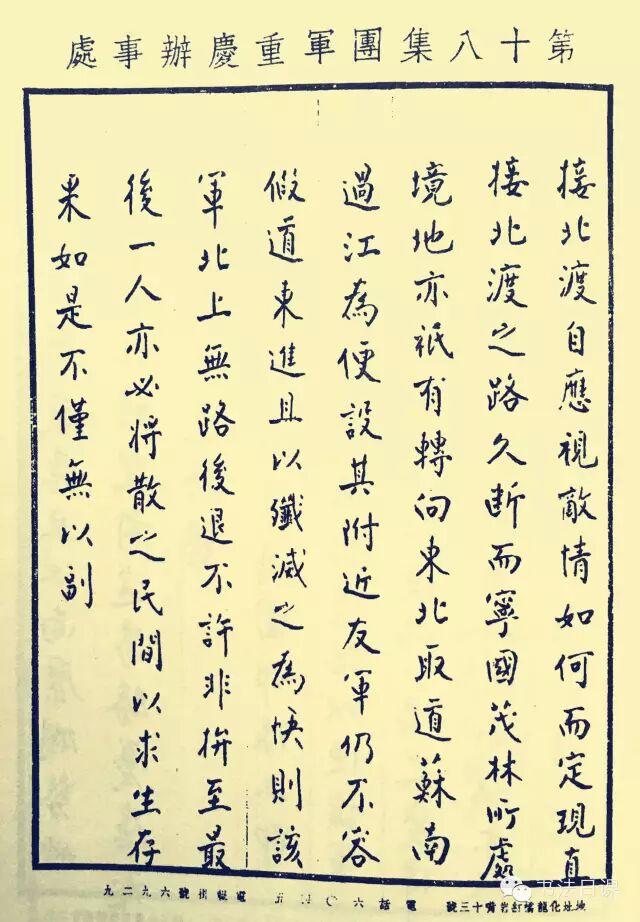 第十八集團軍重慶辦事處
接北渡自應視敵情如何而定現直
接北渡之路久断而寧國茂林所處
境地亦祇有轉向東北取道蘇南
過江為便設其附近友軍仍不容
假道東進且以殲滅之為快則該
軍北上無路後退不許非拚至最
後一人亦必將散之民間以求生存
果如是不僅無以副
地址化龍橋紅岩嘴十三號 電話六〇 五 電報掛號六九二九
书法日课